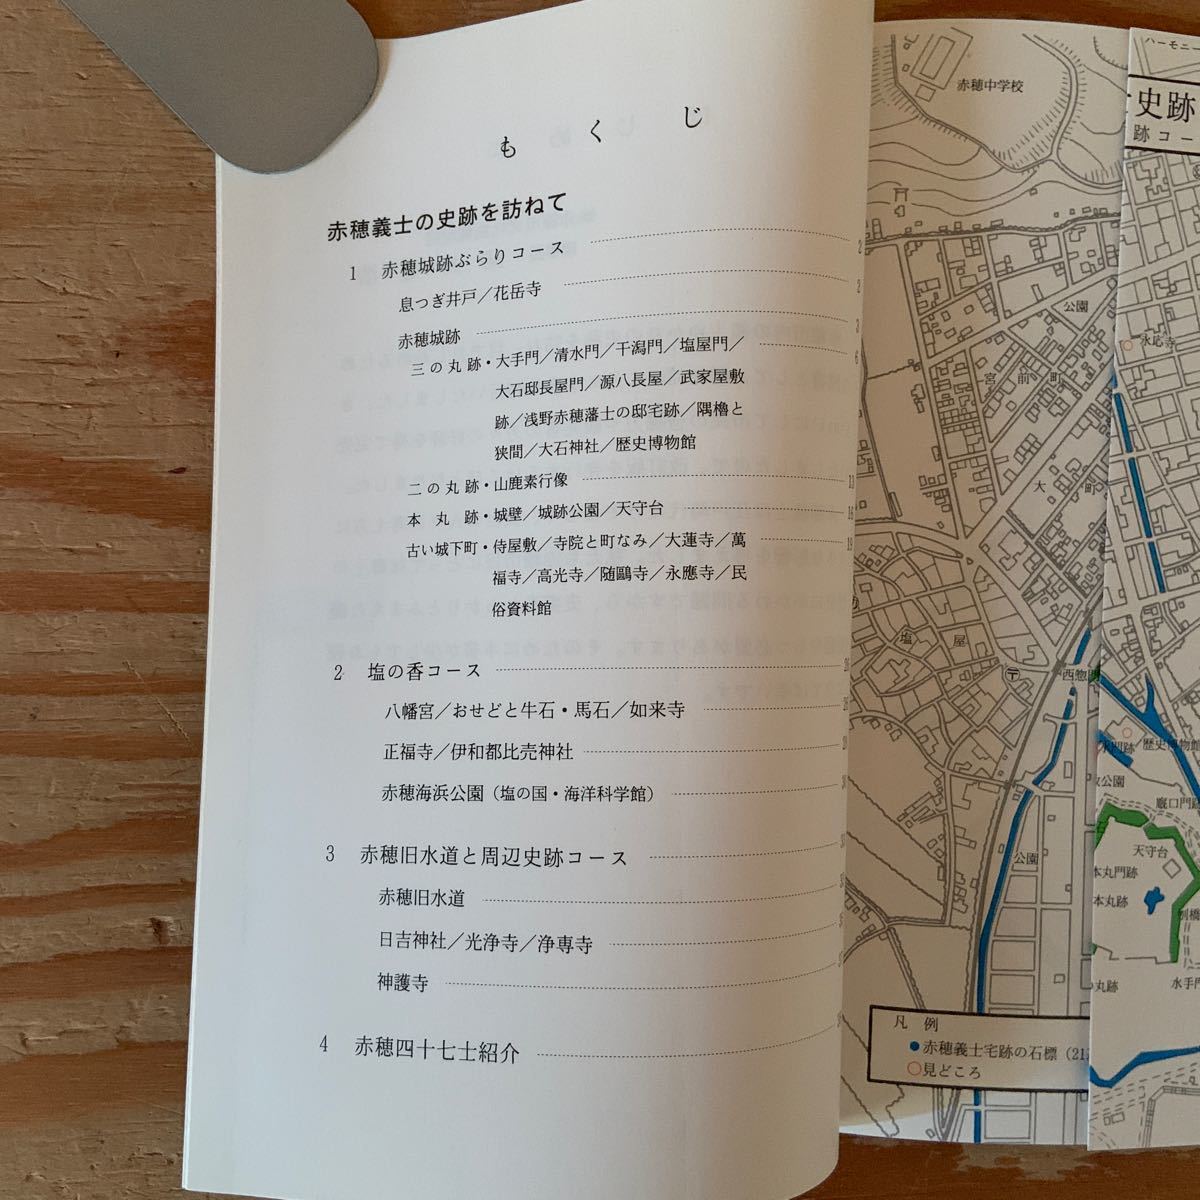 もくじ
赤穂義士の史跡を訪ねて
1 赤穂城跡ぶらりコース 2
息つぎ井戸／花岳寺 2
赤穂城跡 3
三の丸跡・大手門／清水門／干潟門／塩屋門／ 6
大石邸長屋門／源八長屋／武家屋敷
跡／浅野赤穂藩士の邸宅跡／隅櫓と
狭間／大石神社／歴史博物館
二の丸跡・山鹿素行像 13
本丸跡・城壁／城跡公園／天守台 16
古い城下町・侍屋敷／寺院と町なみ／大蓮寺／萬 19
福寺／高光寺／随鷗寺／永應寺／民
俗資料館
2 塩の香コース
八幡宮／おせどと牛石・馬石／如来寺
正福寺／伊和都比売神社
赤穂海浜公園（塩の国・海洋科学館）
3 赤穂旧水道と周辺史跡コース
赤穂旧水道
日吉神社／光浄寺／浄専寺
神護寺
4 赤穂四十七士紹介
赤穂中学校
ハーモニー
史跡
跡コー
公園
永応寺
宮前町
大町
塩屋
〒
西惣門
水門跡
歴史博物館
公園
厩口門跡
天守台
本丸門跡
本丸跡
刎橋
公園
丸跡
水手門
凡例
赤穂義士宅跡の石標（21
見どころ